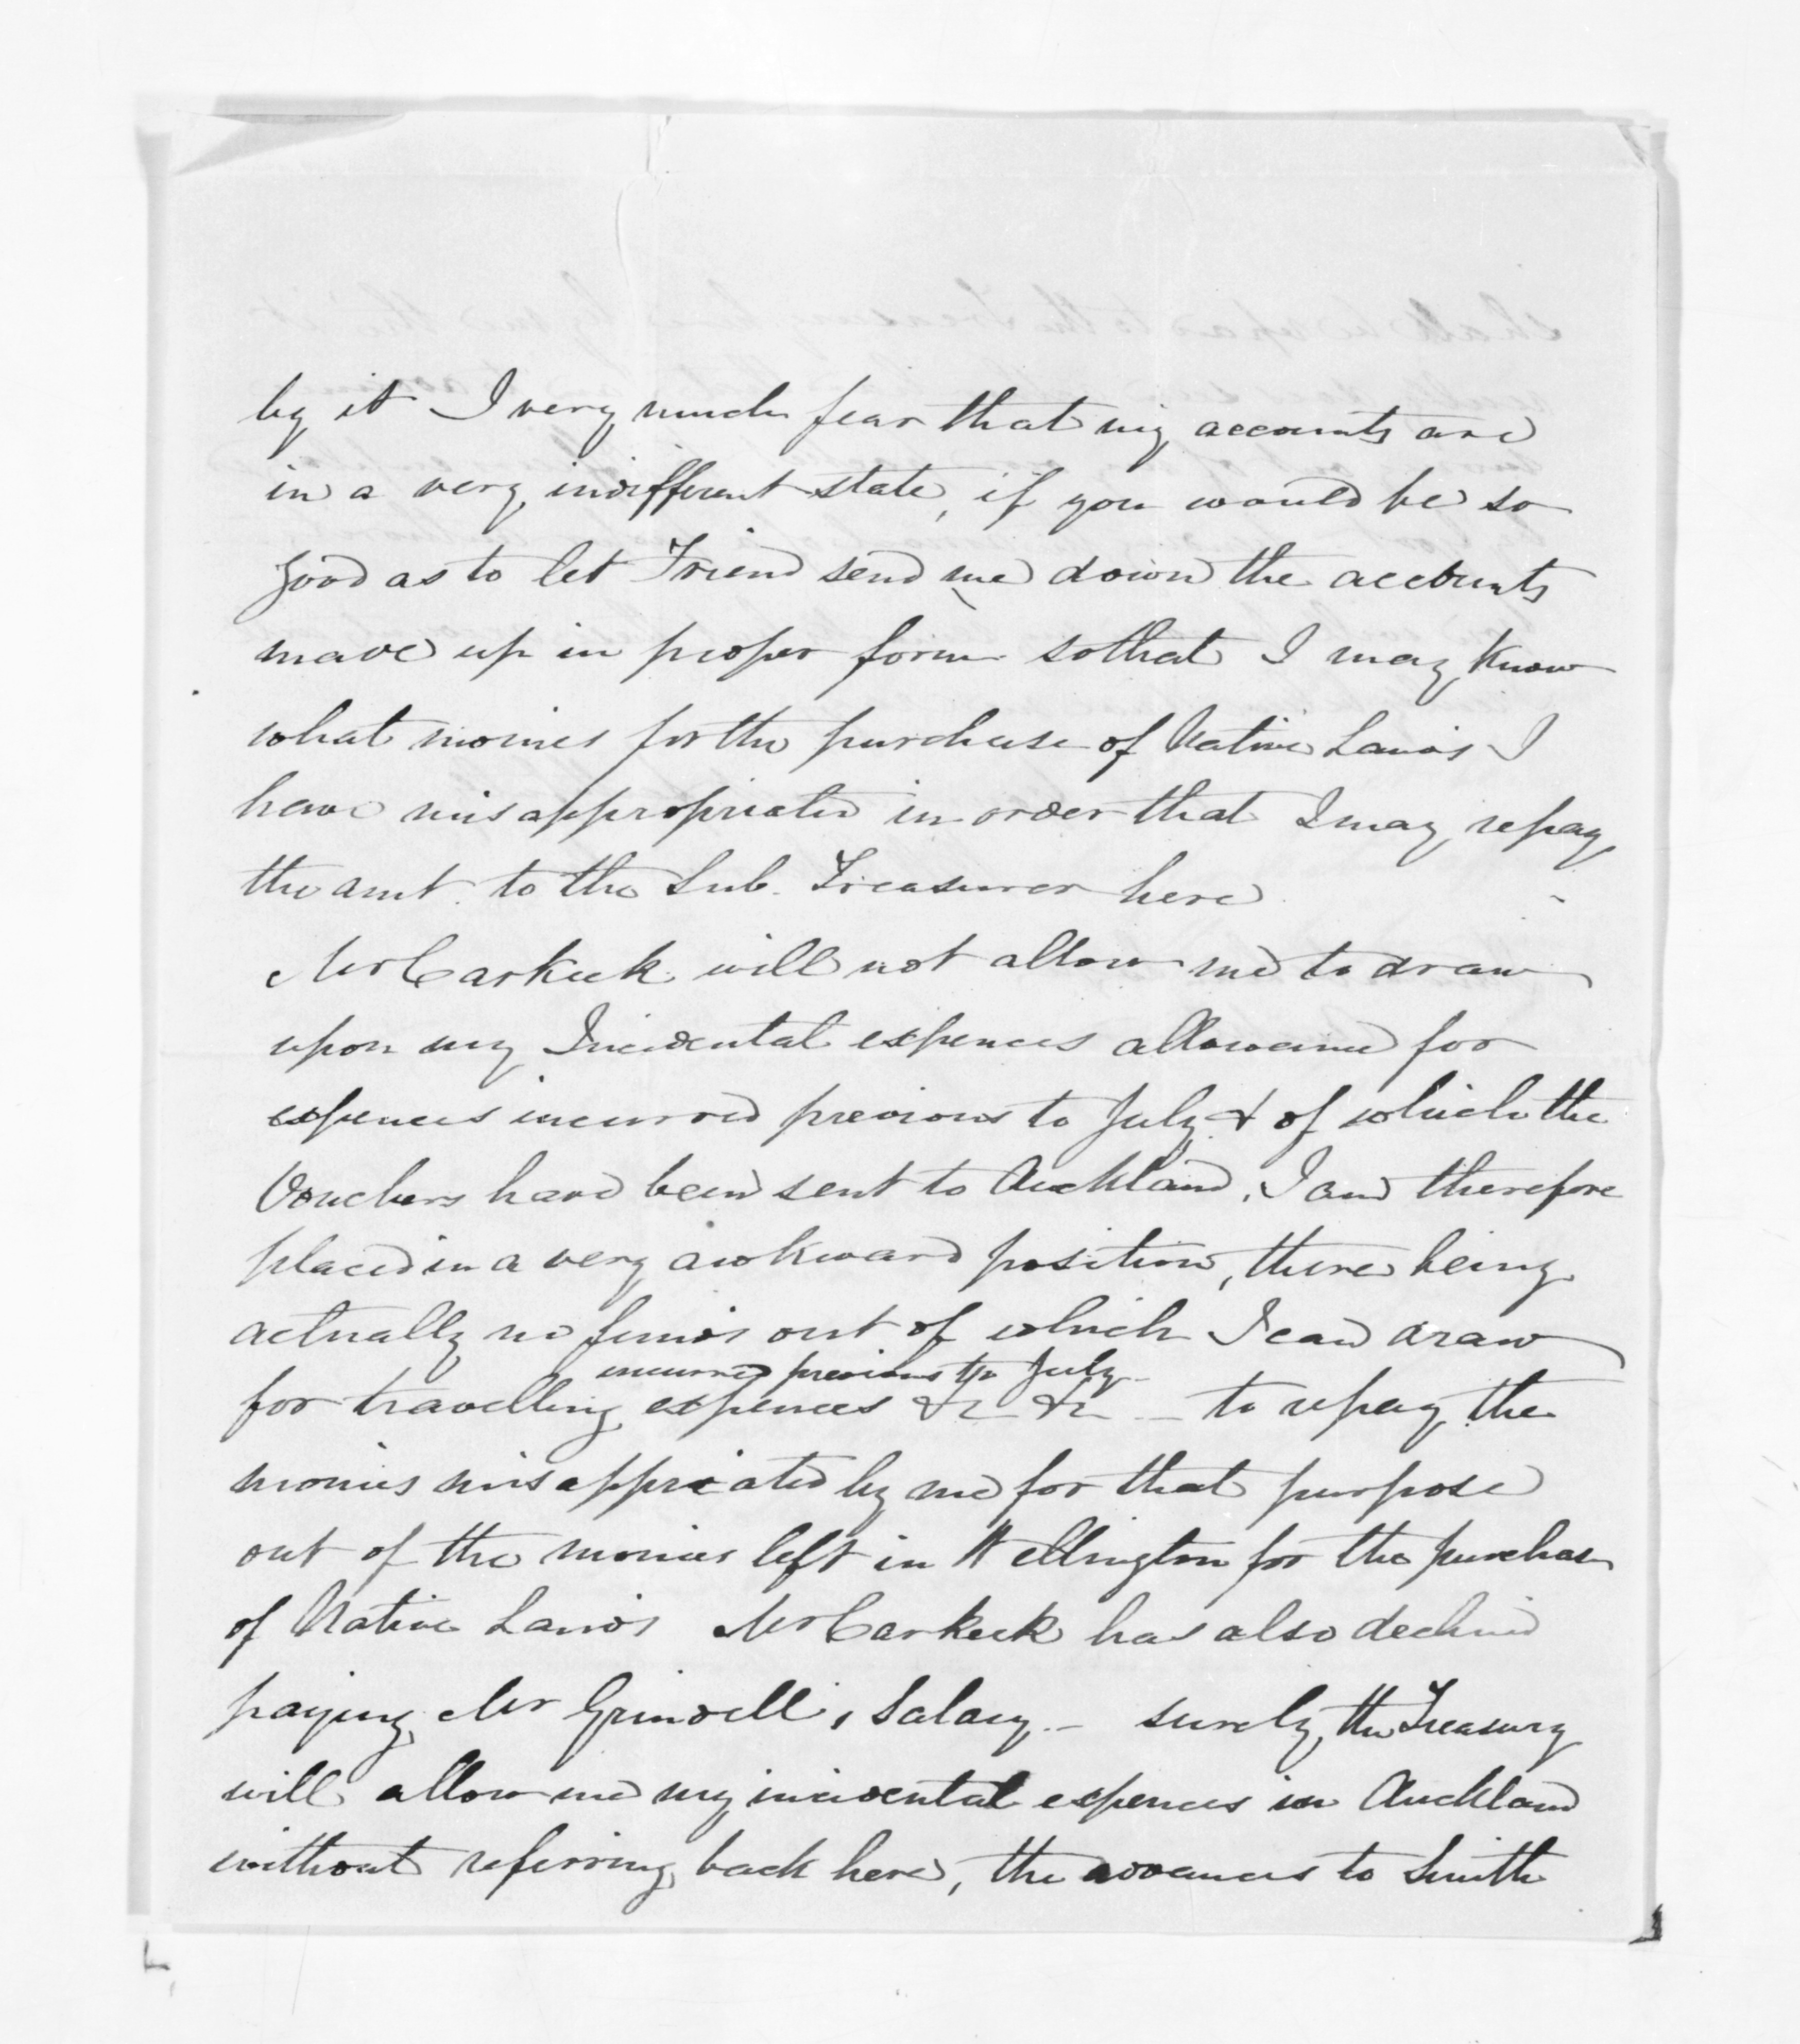 by it I very much fear that my accounts are
in a very indifferent state, if you would be so
good as to let Friend send me down the accounts
made up in proper form so that I may know
what monies for the purchase of Native Lands I
have misappropriated in order that I may repay
the amt. to the Sub. Treasurer here
Mr Carkeek will not allow me to draw
upon my Incidental expences allowance for
expences incurred previous to July & of which the
Vouchers have been sent to Auckland, I am therefore
placed in a very awkward position, there being
actually no funds out of which I can draw
incurred previous to July
for travelling expences &c &c - to repay the
monies misappriated by me for that purpose
out of the monies left in Wellington for the purchase
of Native Lands Mr Carkeek has also declined
paying Mr Grindell's Salary - surely the Treasury
will allow me my incidental expences in Auckland
without referring back here, the advances to Smith